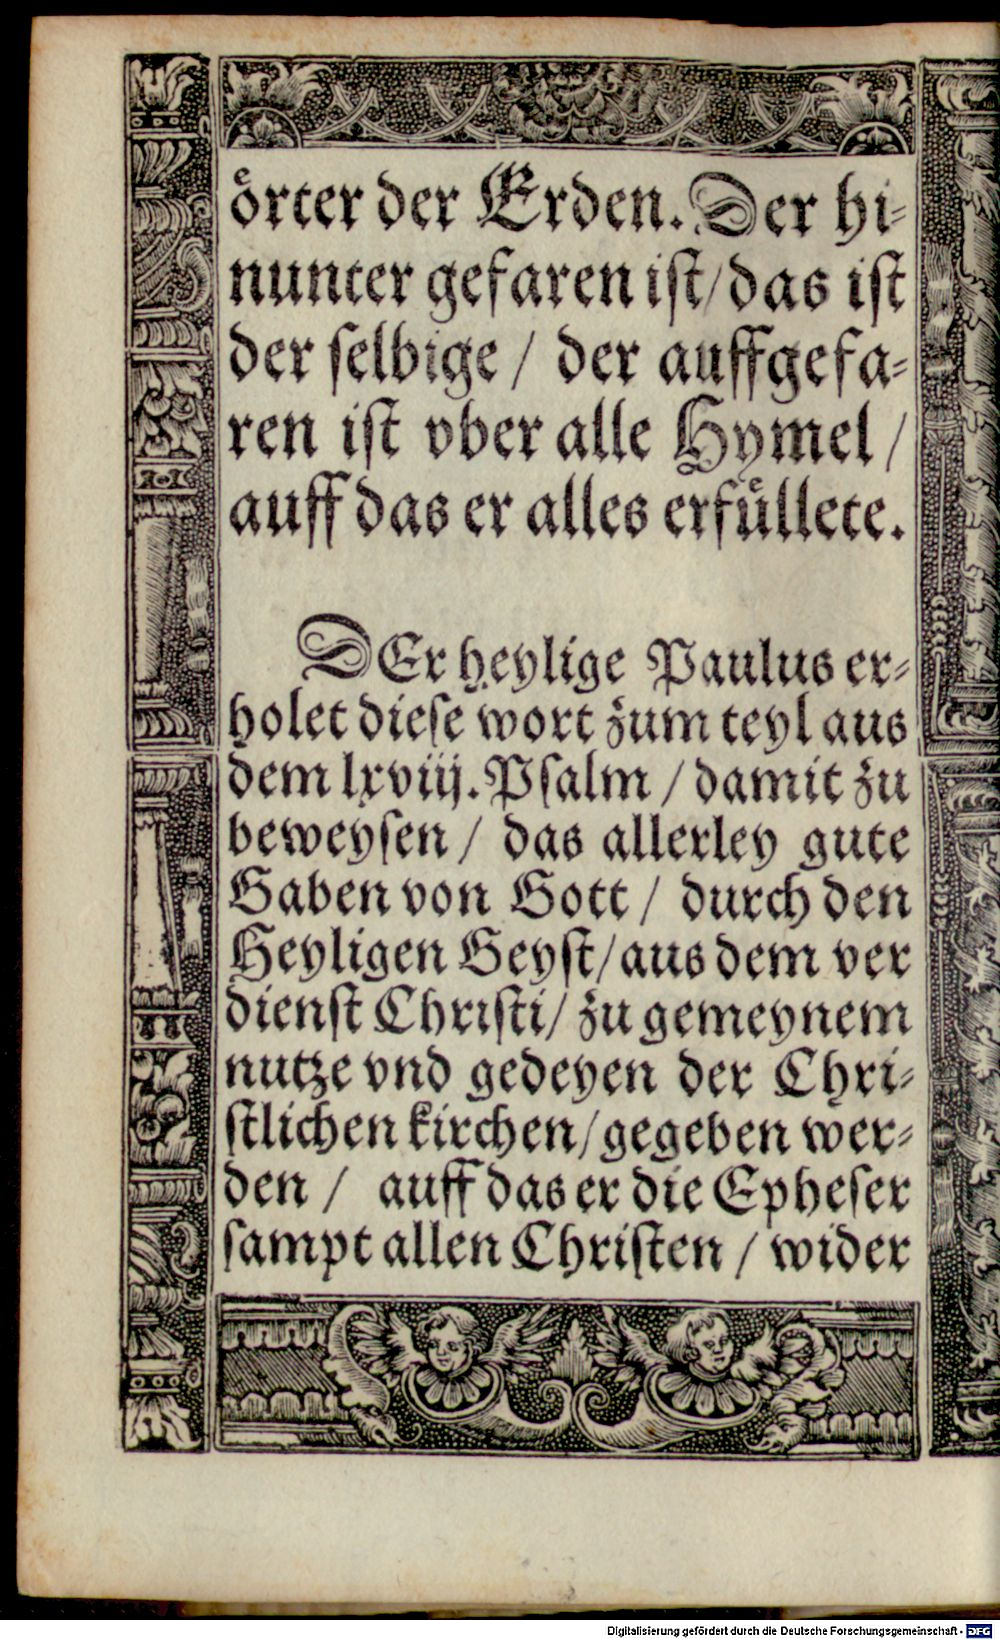 örter der Erden. Der hi⸗
nunter gefaren iſt/ das iſt
der ſelbige / der auffgefa⸗
ren iſt vber alle Hymel /
auff das er alles erfüllete.
DEr heylige Paulus er⸗
holet dieſe wort zum teyl aus
dem lxviij. Pſalm / damit zu
beweyſen / das allerley gute
Gaben von Gott / durch den
Heyligen Geyſt/ aus dem ver
dienſt Chriſti/ zu gemeynem
nutze vnd gedeyen der Chri⸗
ſtlichen kirchen/ gegeben wer⸗
den / auff das er die Epheſer
ſampt allen Chriſten / wider
Digitalisierung gefördert durch die Deutsche Forschungsgemeinschaft - DFG